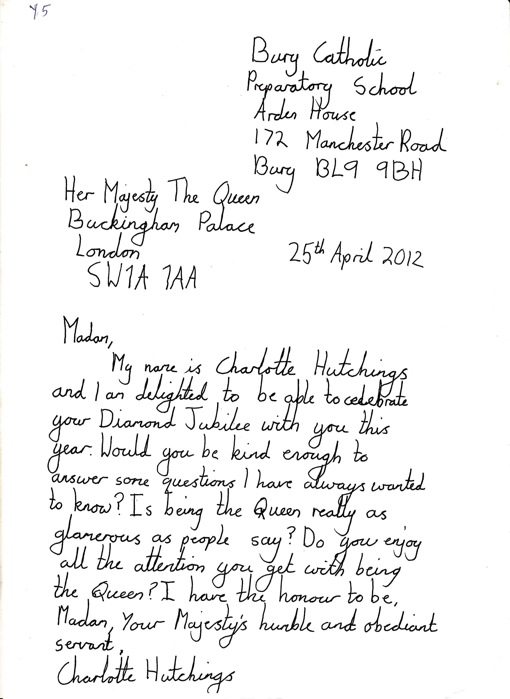 Y5
Bury Catholic
Preparatory School
Arden House
172 Manchester Road
Bury BL9 9BH
Her Majesty The Queen
Buckingham Palace
London
25th April 2012
SW1A 1AA
Madam,
My name is Charlotte Hutchings
and I am delighted to be able to cedebrate
your Diamond Jubilee with you this
year. Would you be kind enough to
answer some questions I have always wanted
to know? Is being the Queen really as
glamerous as people say? Do you enjoy
all the attention you get with being
the Queen? I have the honour to be,
Madam, Your Majesty's humble and obediant
servant,
Charlotte Hutchings